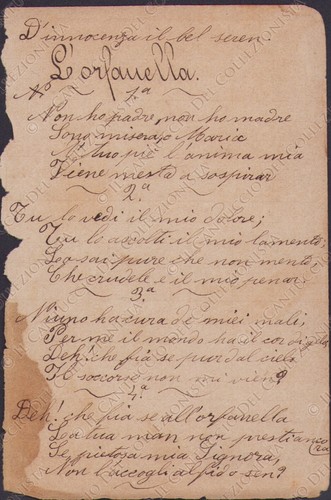 D'innocenza il bel seren
L'orfanella.
No 1.a
Non ho padre, non ho madre
Sono misera, o Maria
A' tuo piè l'anima mia
Viene mesta a sospirar
2.a
Tu lo vedi il mio dolore;
Tu lo ascolti il mio lamento;
Lo sai pure che non mento,
Che crudele è il mio penar.
3.a
Niuno ha cura de miei mali,
Per me il mondo ha il cor di gelo
Deh! che fia se pur dal cielo
Il soccorso non mi vien?
4.a
Deh! che fia se all'orfanella
La tua man non presti ancora
Se pietosa mia Signora,
Non l'accogli al fido sen?